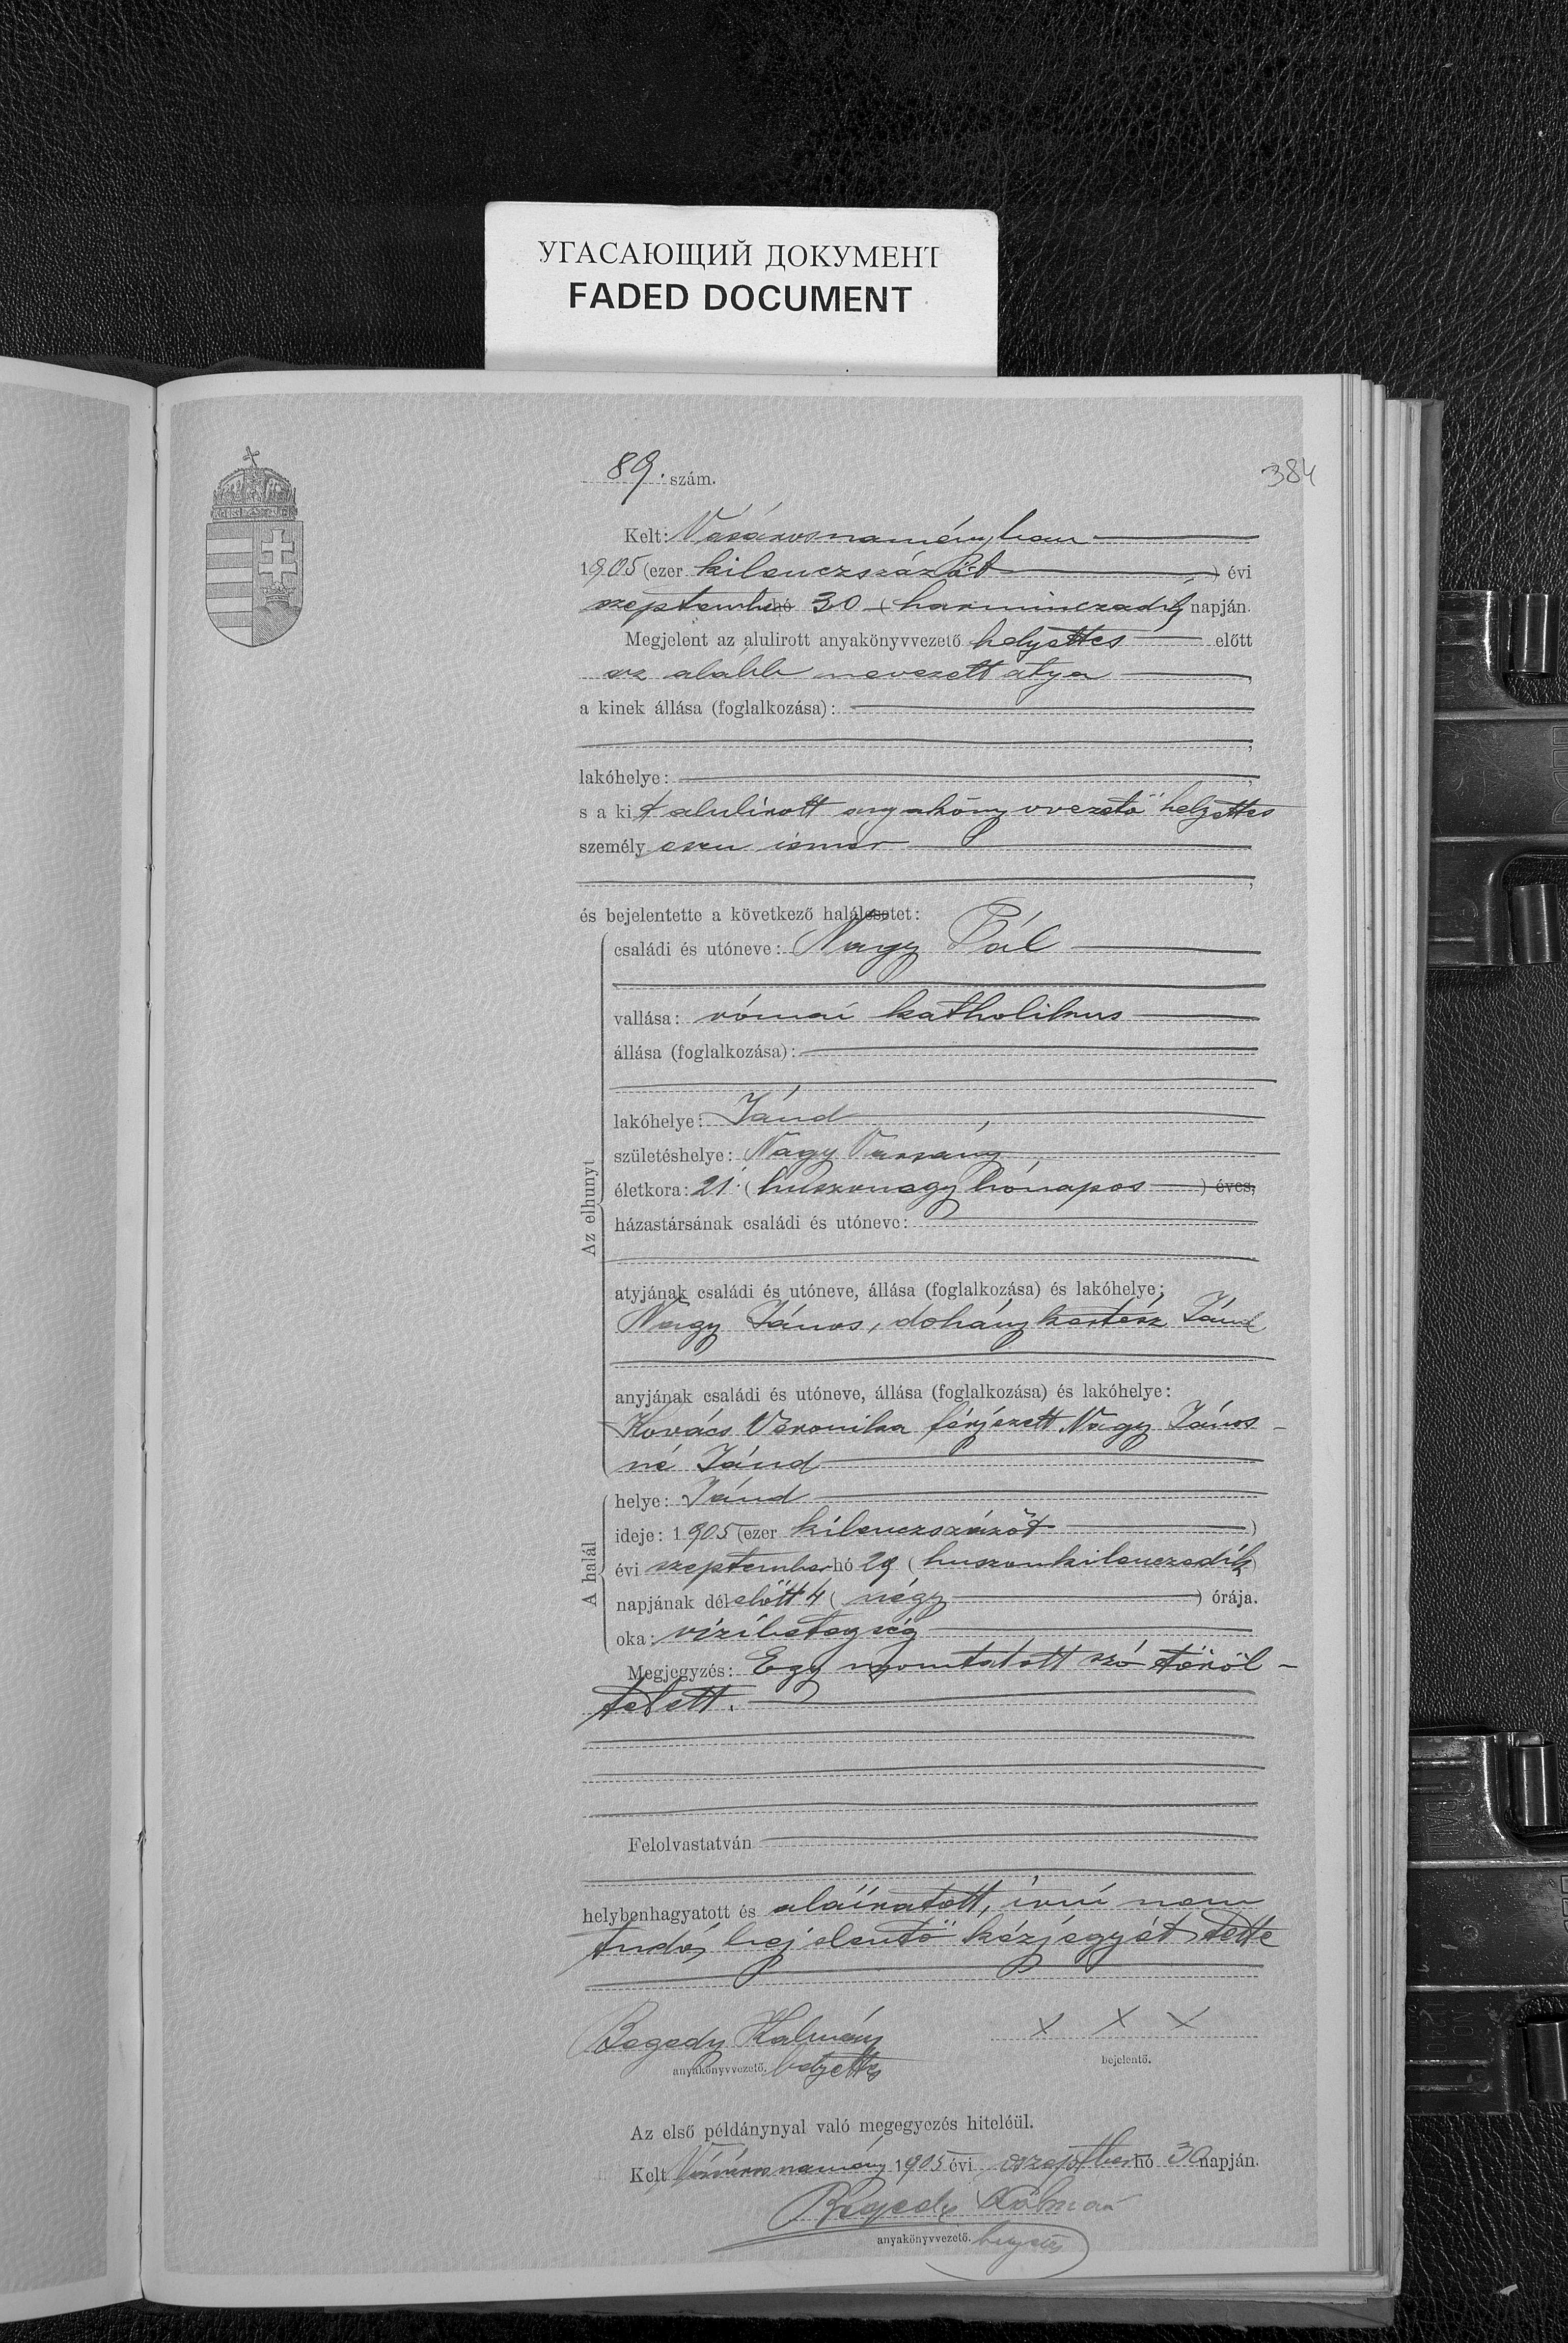 УГАСАЮЩИЙ ДОКУМЕНТ
FADED DOCUMENT
89. szám.
384
Kelt: Vásárosnaményban
1905 (ezer kilenczszázöt ) évi
szeptember hó 30 (harminczadik) napján.
Megjelent az alulirott anyakönyvvezető helyettes előtt
az alább nevezett atya ,
a kinek állása (foglalkozása):
lakóhelye:
s a kit alulirott anyakönyvvezető helyettes
személyesen ismer
és bejelentette a következő halálesetet:
Az elhunyt
családi és utóneve: Nagy Pál
vallása: római katholikus
állása (foglalkozása):
lakóhelye: Jánd ,
születéshelye: Nagy Varsány
életkora: 21 (huszonegy hónapos ) éves,
házastársának családi és utóneve:
atyjának családi és utóneve, állása (foglalkozása) és lakóhelye:
Nagy János, dohánykertész Jánd
anyjának családi és utóneve, állása (foglalkozása) és lakóhelye:
Kovács Veronika férjezett Nagy János-
né Jánd
A halál
helye: Jánd
ideje: 1905 (ezer kilenczszázöt )
évi szeptember hó 29 (huszonkilenczedik)
napjának délelőtt 4 (négy ) órája.
oka: vízibetegség
Megjegyzés: Egy nyomtatott szó töröl-
tetett.
Felolvastatván
helybenhagyatott és aláiratott, írni nem
tudó bejelentő kézjegyét tette
Begedy Kálmán
x x x
anyakönyvvezető. helyettes
bejelentő.
Az első példánynyal való megegyezés hiteléül.
Kelt Vásárosnamény 1905 évi szeptber hó 30 napján.
Begedy Kálmán
anyakönyvvezető. helyettes